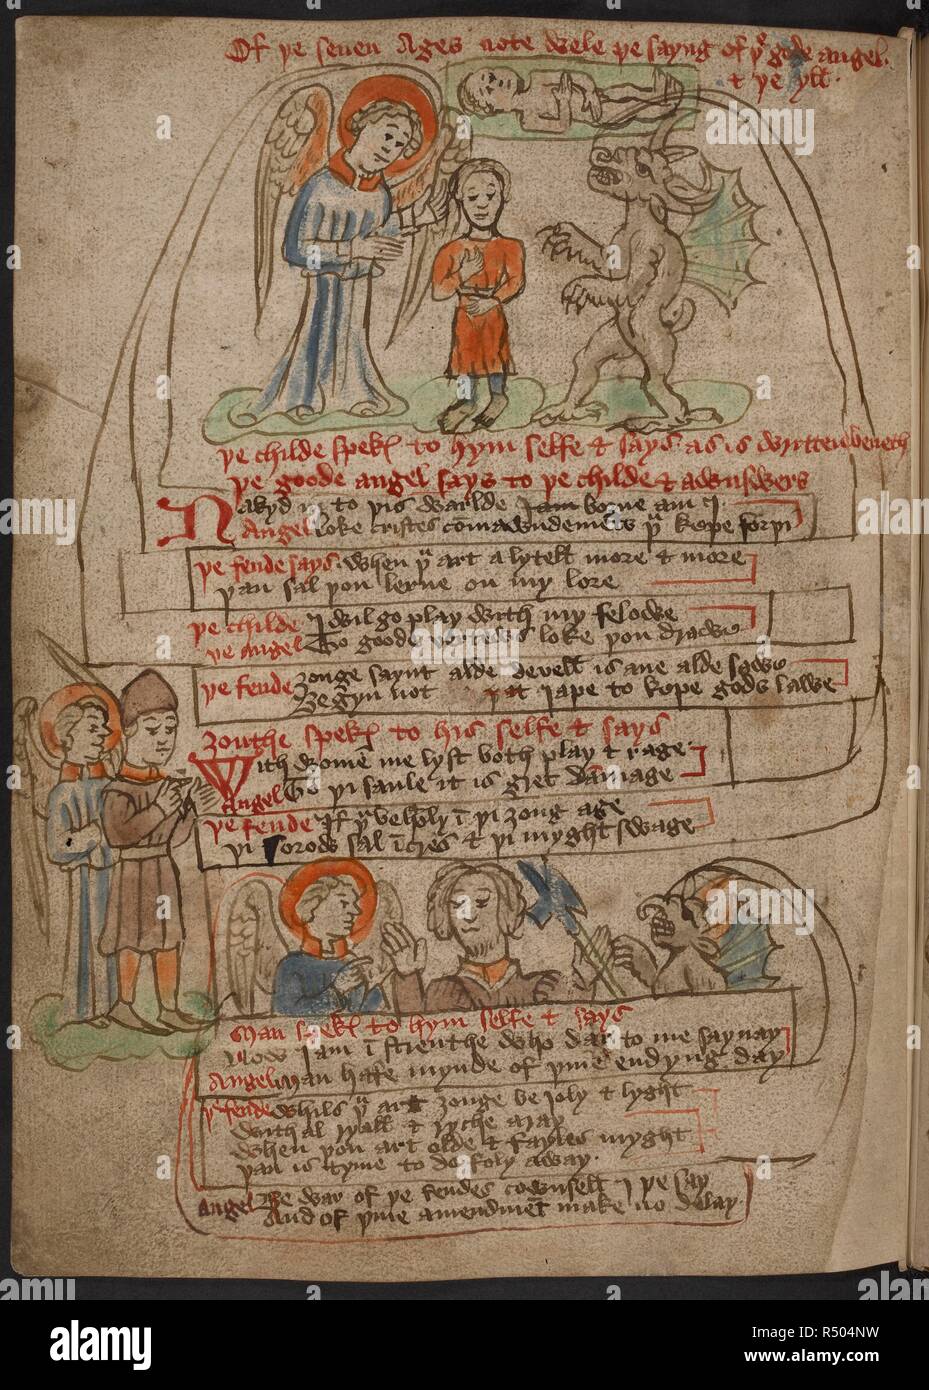 Of þe seuen Ages note wele þe sayng of þͤ gode angel.
& þe yll.
þe childe speks to hym selfe & says as is writtenbenethe
þe goode angel says to þe childe & awnswers
Nakyd in to þis warlde I am borne am I
Angel loke cristes comawndements þͧ kepe forþi
þe fende says when þͧ art a lytell more & more
þan sal þou lerne on my lore
þe childe I wil go play with my felowe
þe angel To goode vertews loke þou drawe
þe fende zonge saynt alde devell is ane alde sawe
Begyn not þat Jape to kepe gods lawe
zouthe speks to his selfe & says
With women me lyst both play & rage
Angel To þi saule it is gret damage
þe fende If þͧ be holy ī þi zong age
þi sorow sal īcres & þi myght swage
Man speks to hym selfe & says
Now I am ī strenthe who dar to me say nay
Angel Man hafe mynde of þine endyng day
þe fende Whils þͧ art zonge be joly & lyght
With al ryall & ryche aray
When þou art olde & fayles myght
þan is tyme to do foly away.
Angel Be war of þe fendes cownsell I þe say
And of þine amendmēt make no delay.
alamy
Image ID: R504NW
www.alamy.com